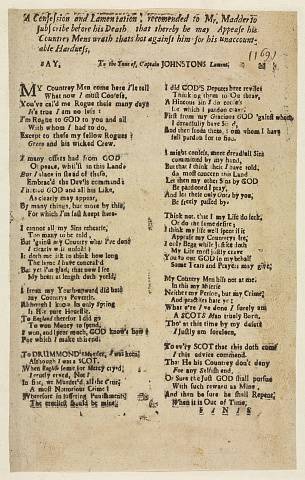 A Confession and Lamentation, recomended to Mr, Madder to
subscribe before his Death that thereby he may Appease his
Country Mens wrath thats hot against him for his unaccount-
able Harduess,
(169)
SAY, To the Tune of, Captain JOHNSTONS Lament,
MY Countrey Men come here I'le tell
What now I must Confess,
You've cal'd me Rogue these many days
It's true I am no less:
I'm Rogue to GOD to you and all
With whom I had to do,
Except to these my fellow Rogues
Green and his wicked Crew.
I many offers had from GOD
Of peace, whilst in this Land
But I place in stead of these,
Embrac'd the Devils command:
I left GOD and all his Laws,
As clearly may appear,
By many things, but more by this,
For which I'm fast keept here.
I cannot all my Sins rehearse,
Too many to be told,
But 'gainst my Countrey what I've done
I clearly will unfold:
It doth me ill to think how long
The same I have conceal'd
But yet I'm glad, that now I see
My heart at length doth yield,
I from my Youth-upward did hate
my Countreys Poverty.
Although I know its only Sprung
To England therefor I did go
To won Money to spend,
I won, and spent much, GOD know's how
For which I make this end.
To DRUMMOND's Murder, I was keen
Although I was a SCOT,
When English some for Mercy cryed
I cruely cryed, Not:
In fine, we Murder'd all the Crue,
A most Notorious Crime!
Wherefore in suffering Punishments
The cruelest should be mine,
I did GOD's Deputes bree reviled
Think og them to Outbrave,
A Hineous sin I do confess
for which I pardon crave:
First from my Gracious GOD 'gainst whom
I dreadfully have
And then from those, from whom I have
full pardon for to
I might confess, meer dread all Sin
committed by my hand,
But that I think their I have told,
do most concern this Land
Let then my other Sins by GOD
Be pardoned I pray,
And let their only Once by you,
Be freely passed by:
Think not, that I my Life do seek,
Or do the same desire;
I think my life well spent if it
Appease my Countreys Ire,
I only Begg while Justice doth
My Life most justly crave
You to our GOD in my behalf
Some Tears and Prayers may give,
My Countrey Men hits not at me,
In this my Misrie
Neither my Person, but my Crime,
And practises hate ye:
What e're I've done I surely am
A SCOTS Man truely born
Tho' at this time by my desert
I justly am forelorn,
To ev'ry SCOT that this doth come
I this advice command.
That He his Countrey don't deny
For any Selfish end,
Or Sure the just GOD shall pursue
With such reward as Mine,
And then be sure he shall Repent,
When it is Out of Time,
FINIS